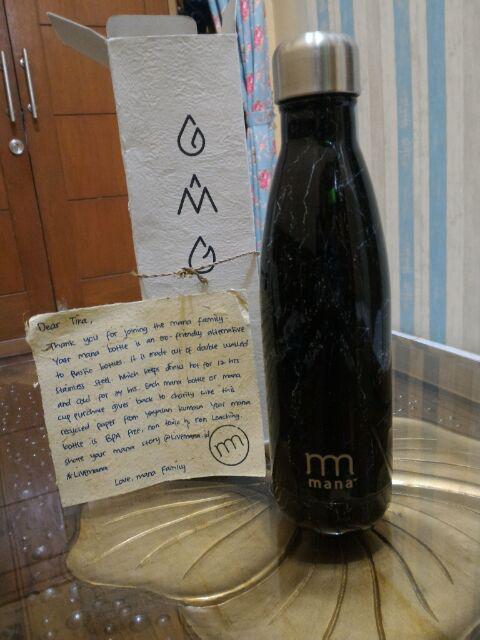 Dear Tika,
Thank you for joining the mana family.
Your mana bottle is an eco-friendly alternative
to plastic bottles. It is made out of double walled
stainless steel. Which keeps drinks hot for 12 hrs
and cold for 24 hrs. Each mana bottle or mana
cup purchase gives back to charity like this
recycled paper from yayasan kumala. Your mana
bottle is BPA free, non toxic & non leaching.
share your mana story @Livemana.id
#Livemana
Love, mana Family
m
mana